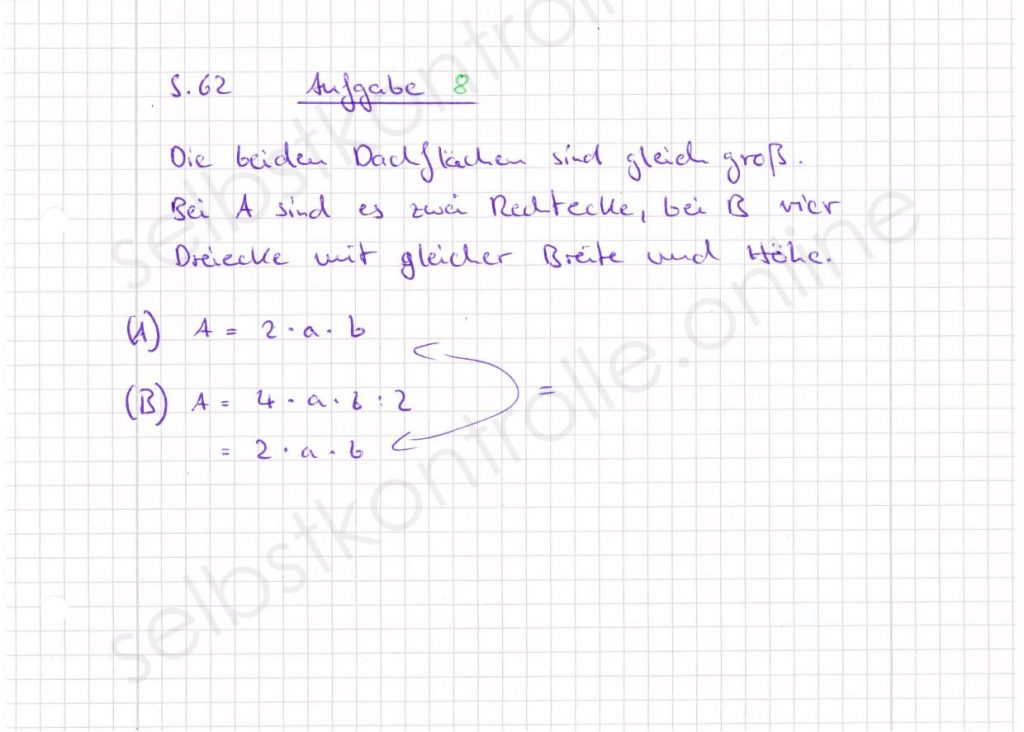 S. 62 Aufgabe 8
Die beiden Dachflächen sind gleich groß.
Bei A sind es zwei Rechtecke, bei B vier
Dreiecke mit gleicher Breite und Höhe.
(A) A = 2 · a · b
(B) A = 4 · a · b : 2 =
= 2 · a · b
selbstkontrolle.online
selbstkontrolle.online